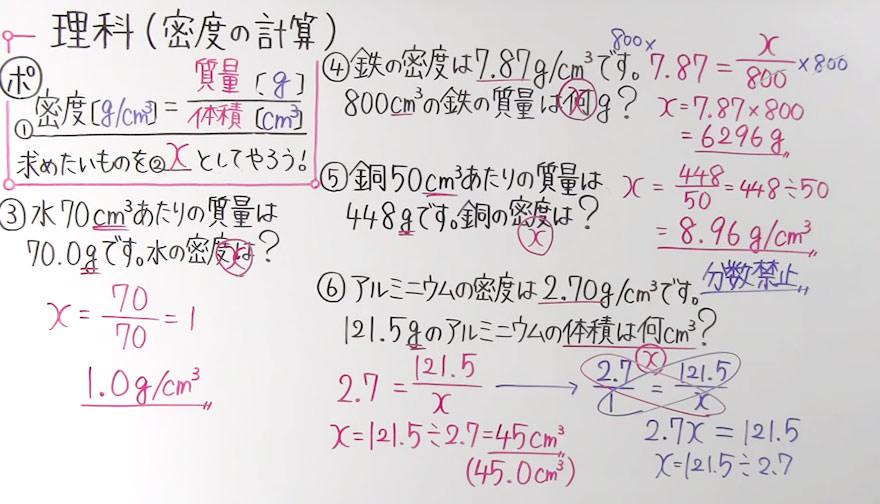 理科(密度の計算)
ポ
① 密度[g/cm³] = 質量[g] / 体積[cm³]
求めたいものを② x としてやろう!
③ 水70cm³あたりの質量は
70.0gです。水の密度は?
x
x = 70/70 = 1
1.0g/cm³
④ 鉄の密度は7.87g/cm³です。
800cm³の鉄の質量は何g?
x
800× 7.87 = x/800 ×800
x = 7.87×800
= 6296g
⑤ 銅50cm³あたりの質量は
448gです。銅の密度は?
x
x = 448/50 = 448÷50
= 8.96g/cm³
分数禁止
⑥ アルミニウムの密度は2.70g/cm³です。
121.5gのアルミニウムの体積は何cm³?
x
2.7 = 121.5/x → 2.7/1 = 121.5/x
x=121.5÷2.7=45cm³
(45.0cm³)
2.7x = 121.5
x=121.5÷2.7